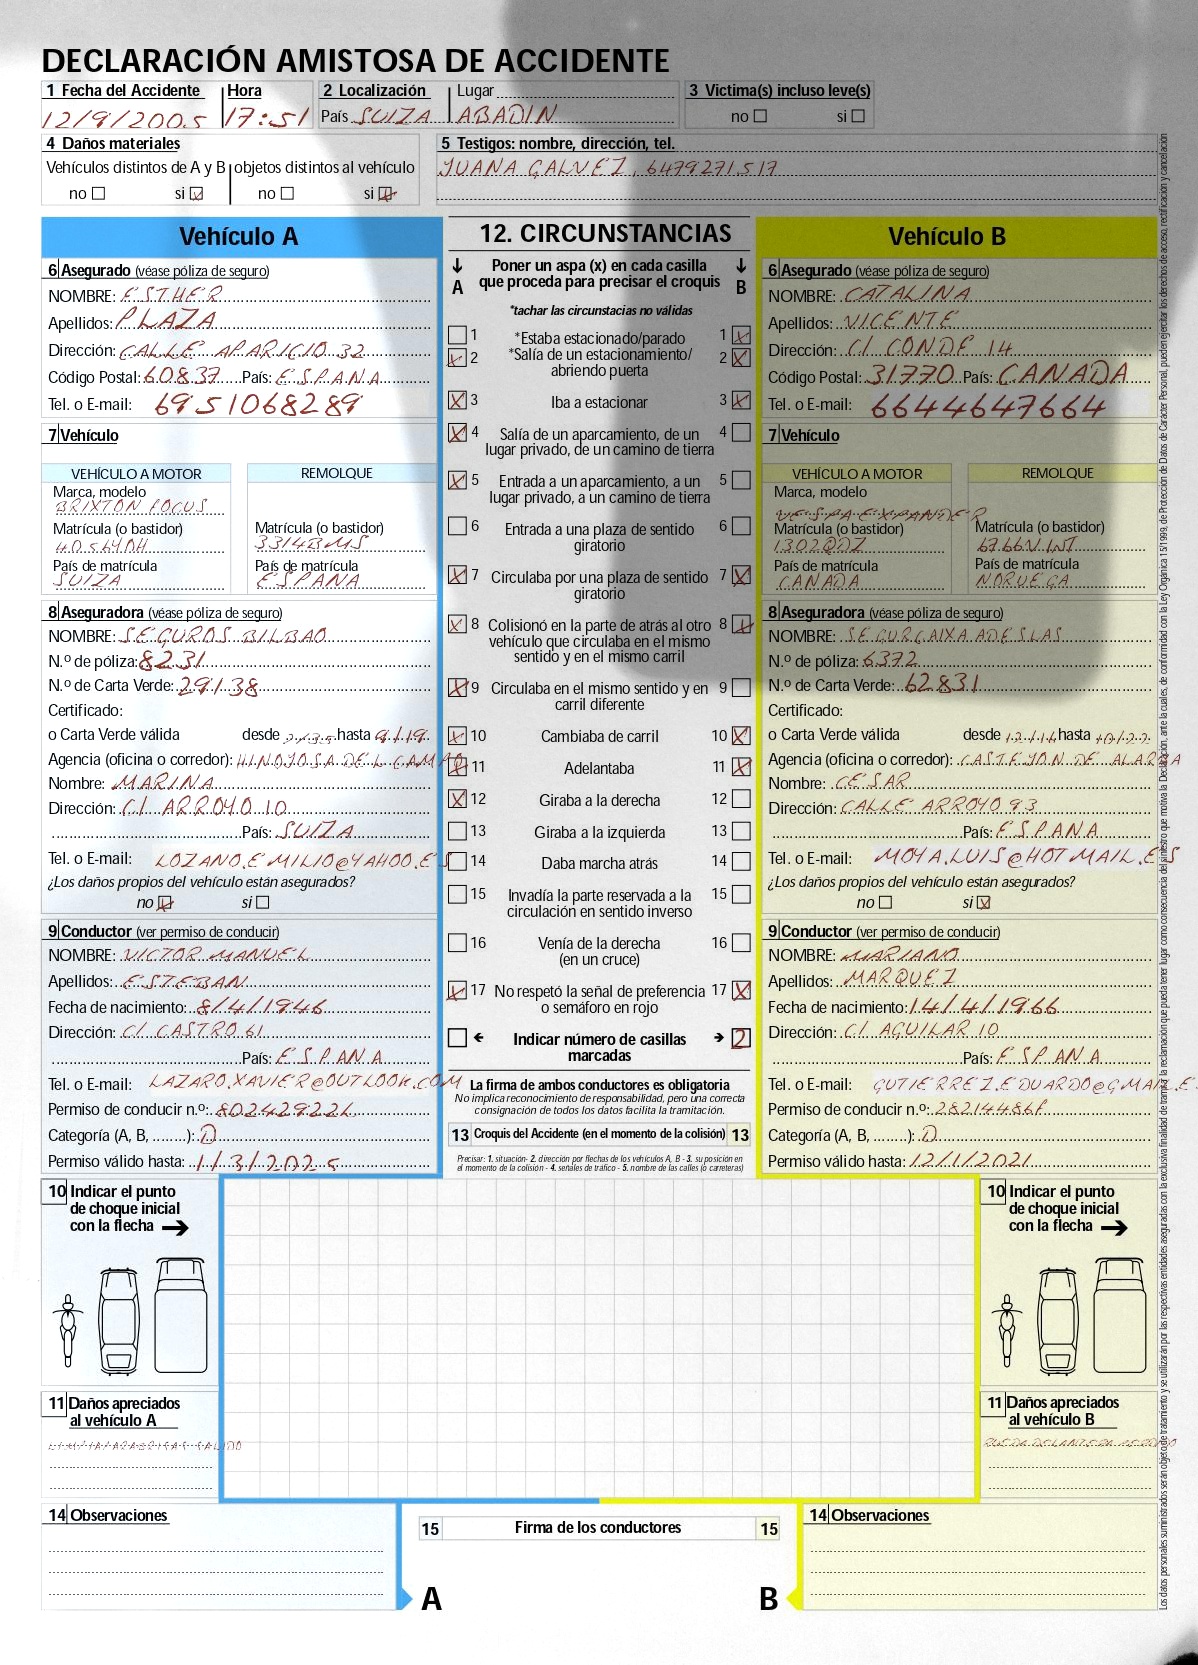 DECLARACIÓN AMISTOSA DE ACCIDENTE
1 Fecha del Accidente Hora 2 Localización Lugar 3 Victima(s) incluso leve(s)
12/9/2005 17:51 País SUIZA ABADIN no si
4 Daños materiales
Vehículos distintos de A y B objetos distintos al vehículo
no si no si
5 Testigos: nombre, dirección, tel.
JUANA GALVEZ, 6479271517
Vehículo A
6 Asegurado (véase póliza de seguro)
NOMBRE: ESTHER
Apellidos: PLAZA
Dirección: CALLE APARICIO 32
Código Postal: 60837 País: ESPANA
Tel. o E-mail: 6951068289
7 Vehículo
VEHÍCULO A MOTOR REMOLQUE
Marca, modelo
BRIXTON FOCUS
Matrícula (o bastidor) Matrícula (o bastidor)
4056YDH 3314BMS
País de matrícula País de matrícula
SUIZA ESPANA
8 Aseguradora (véase póliza de seguro)
NOMBRE: SEGUROS BILBAO
N.º de póliza: 8231
N.º de Carta Verde: 29138
Certificado:
o Carta Verde válida desde hasta 9/19
Agencia (oficina o corredor): HINOJOSA DEL CAMPO
Nombre: MARINA
Dirección: C/ ARROYO 10
País: SUIZA
Tel. o E-mail: LOZANO.EMILIO@YAHOO.ES
¿Los daños propios del vehículo están asegurados?
no si
9 Conductor (ver permiso de conducir)
NOMBRE: VICTOR MANUEL
Apellidos: ESTEBAN
Fecha de nacimiento: 8/4/1946
Dirección: C/ CASTRO 61
País: ESPANA
Tel. o E-mail: LAZARO.XAVIER@OUTLOOK.COM
Permiso de conducir n.º: 80242922L
Categoría (A, B, ........): D
Permiso válido hasta: 1/3/2025
12. CIRCUNSTANCIAS
A Poner un aspa (x) en cada casilla que proceda para precisar el croquis B
*tachar las circunstacias no válidas
1 *Estaba estacionado/parado 1
2 *Salía de un estacionamiento/ abriendo puerta 2
3 Iba a estacionar 3
4 Salía de un aparcamiento, de un lugar privado, de un camino de tierra 4
5 Entrada a un aparcamiento, a un lugar privado, a un camino de tierra 5
6 Entrada a una plaza de sentido giratorio 6
7 Circulaba por una plaza de sentido giratorio 7
8 Colisionó en la parte de atrás al otro vehículo que circulaba en el mismo sentido y en el mismo carril 8
9 Circulaba en el mismo sentido y en carril diferente 9
10 Cambiaba de carril 10
11 Adelantaba 11
12 Giraba a la derecha 12
13 Giraba a la izquierda 13
14 Daba marcha atrás 14
15 Invadía la parte reservada a la circulación en sentido inverso 15
16 Venía de la derecha (en un cruce) 16
17 No respetó la señal de preferencia o semáforo en rojo 17
Indicar número de casillas marcadas 2
La firma de ambos conductores es obligatoria
No implica reconocimiento de responsabilidad, pero una correcta
consignación de todos los datos facilita la tramitación.
13 Croquis del Accidente (en el momento de la colisión) 13
Precisar: 1. situación- 2. dirección por flechas de los vehículos A, B - 3. su posición en
el momento de la colisión - 4. señales de tráfico - 5. nombre de las calles (o carreteras)
Vehículo B
6 Asegurado (véase póliza de seguro)
NOMBRE: CATALINA
Apellidos: VICENTE
Dirección: C/ CONDE 14
Código Postal: 31770 País: CANADA
Tel. o E-mail: 6644647664
7 Vehículo
VEHÍCULO A MOTOR REMOLQUE
Marca, modelo
VESPA EXPANDER
Matrícula (o bastidor) Matrícula (o bastidor)
1302QDZ 6766VWT
País de matrícula País de matrícula
CANADA NORUEGA
8 Aseguradora (véase póliza de seguro)
NOMBRE: SEGURCAIXA ADESLAS
N.º de póliza: 6372
N.º de Carta Verde: 62831
Certificado:
o Carta Verde válida desde 12/14 hasta 10/22
Agencia (oficina o corredor): CASTEJON DE ALARBA
Nombre: CESAR
Dirección: CALLE ARROYO 93
País: ESPANA
Tel. o E-mail: MOYA.LUIS@HOTMAIL.ES
¿Los daños propios del vehículo están asegurados?
no si
9 Conductor (ver permiso de conducir)
NOMBRE: MARIANO
Apellidos: MARQUEZ
Fecha de nacimiento: 14/4/1966
Dirección: C/ AGUILAR 10
País: ESPANA
Tel. o E-mail: GUTIERREZ.EDUARDO@GMAIL.E
Permiso de conducir n.º: 28214486F
Categoría (A, B, ........): D
Permiso válido hasta: 12/1/2021
10 Indicar el punto
de choque inicial
con la flecha
11 Daños apreciados
al vehículo A
LIMPIAPARABRISAS SALIDO
10 Indicar el punto
de choque inicial
con la flecha
11 Daños apreciados
al vehículo B
RUEDA DELANTERA
14 Observaciones
15 Firma de los conductores 15
A B
14 Observaciones